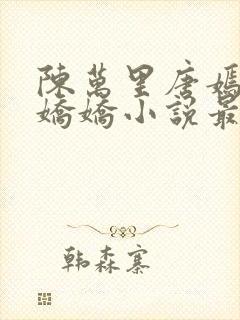 陳萬里唐嫣
嬌嬌小說最
韩森寨